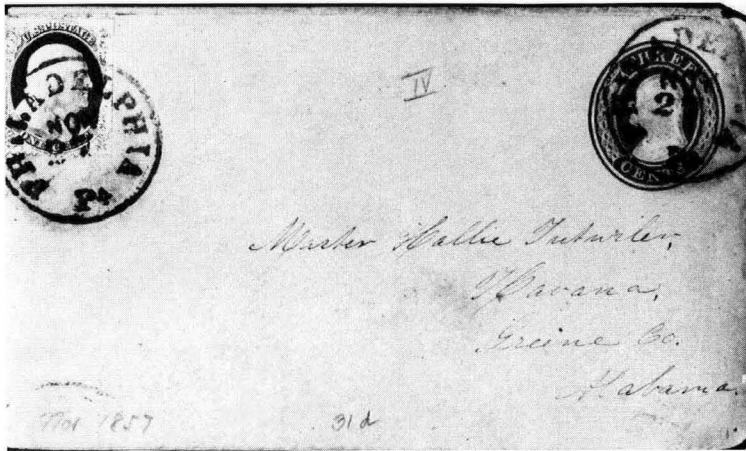 U.S. POSTAGE
PHILADELPHIA Pa
NOV
THREE
CENTS
2
IV
Master Hallie Tutwiler,
Havana,
Greene Co.
Alabama.
Nov 1857
31d